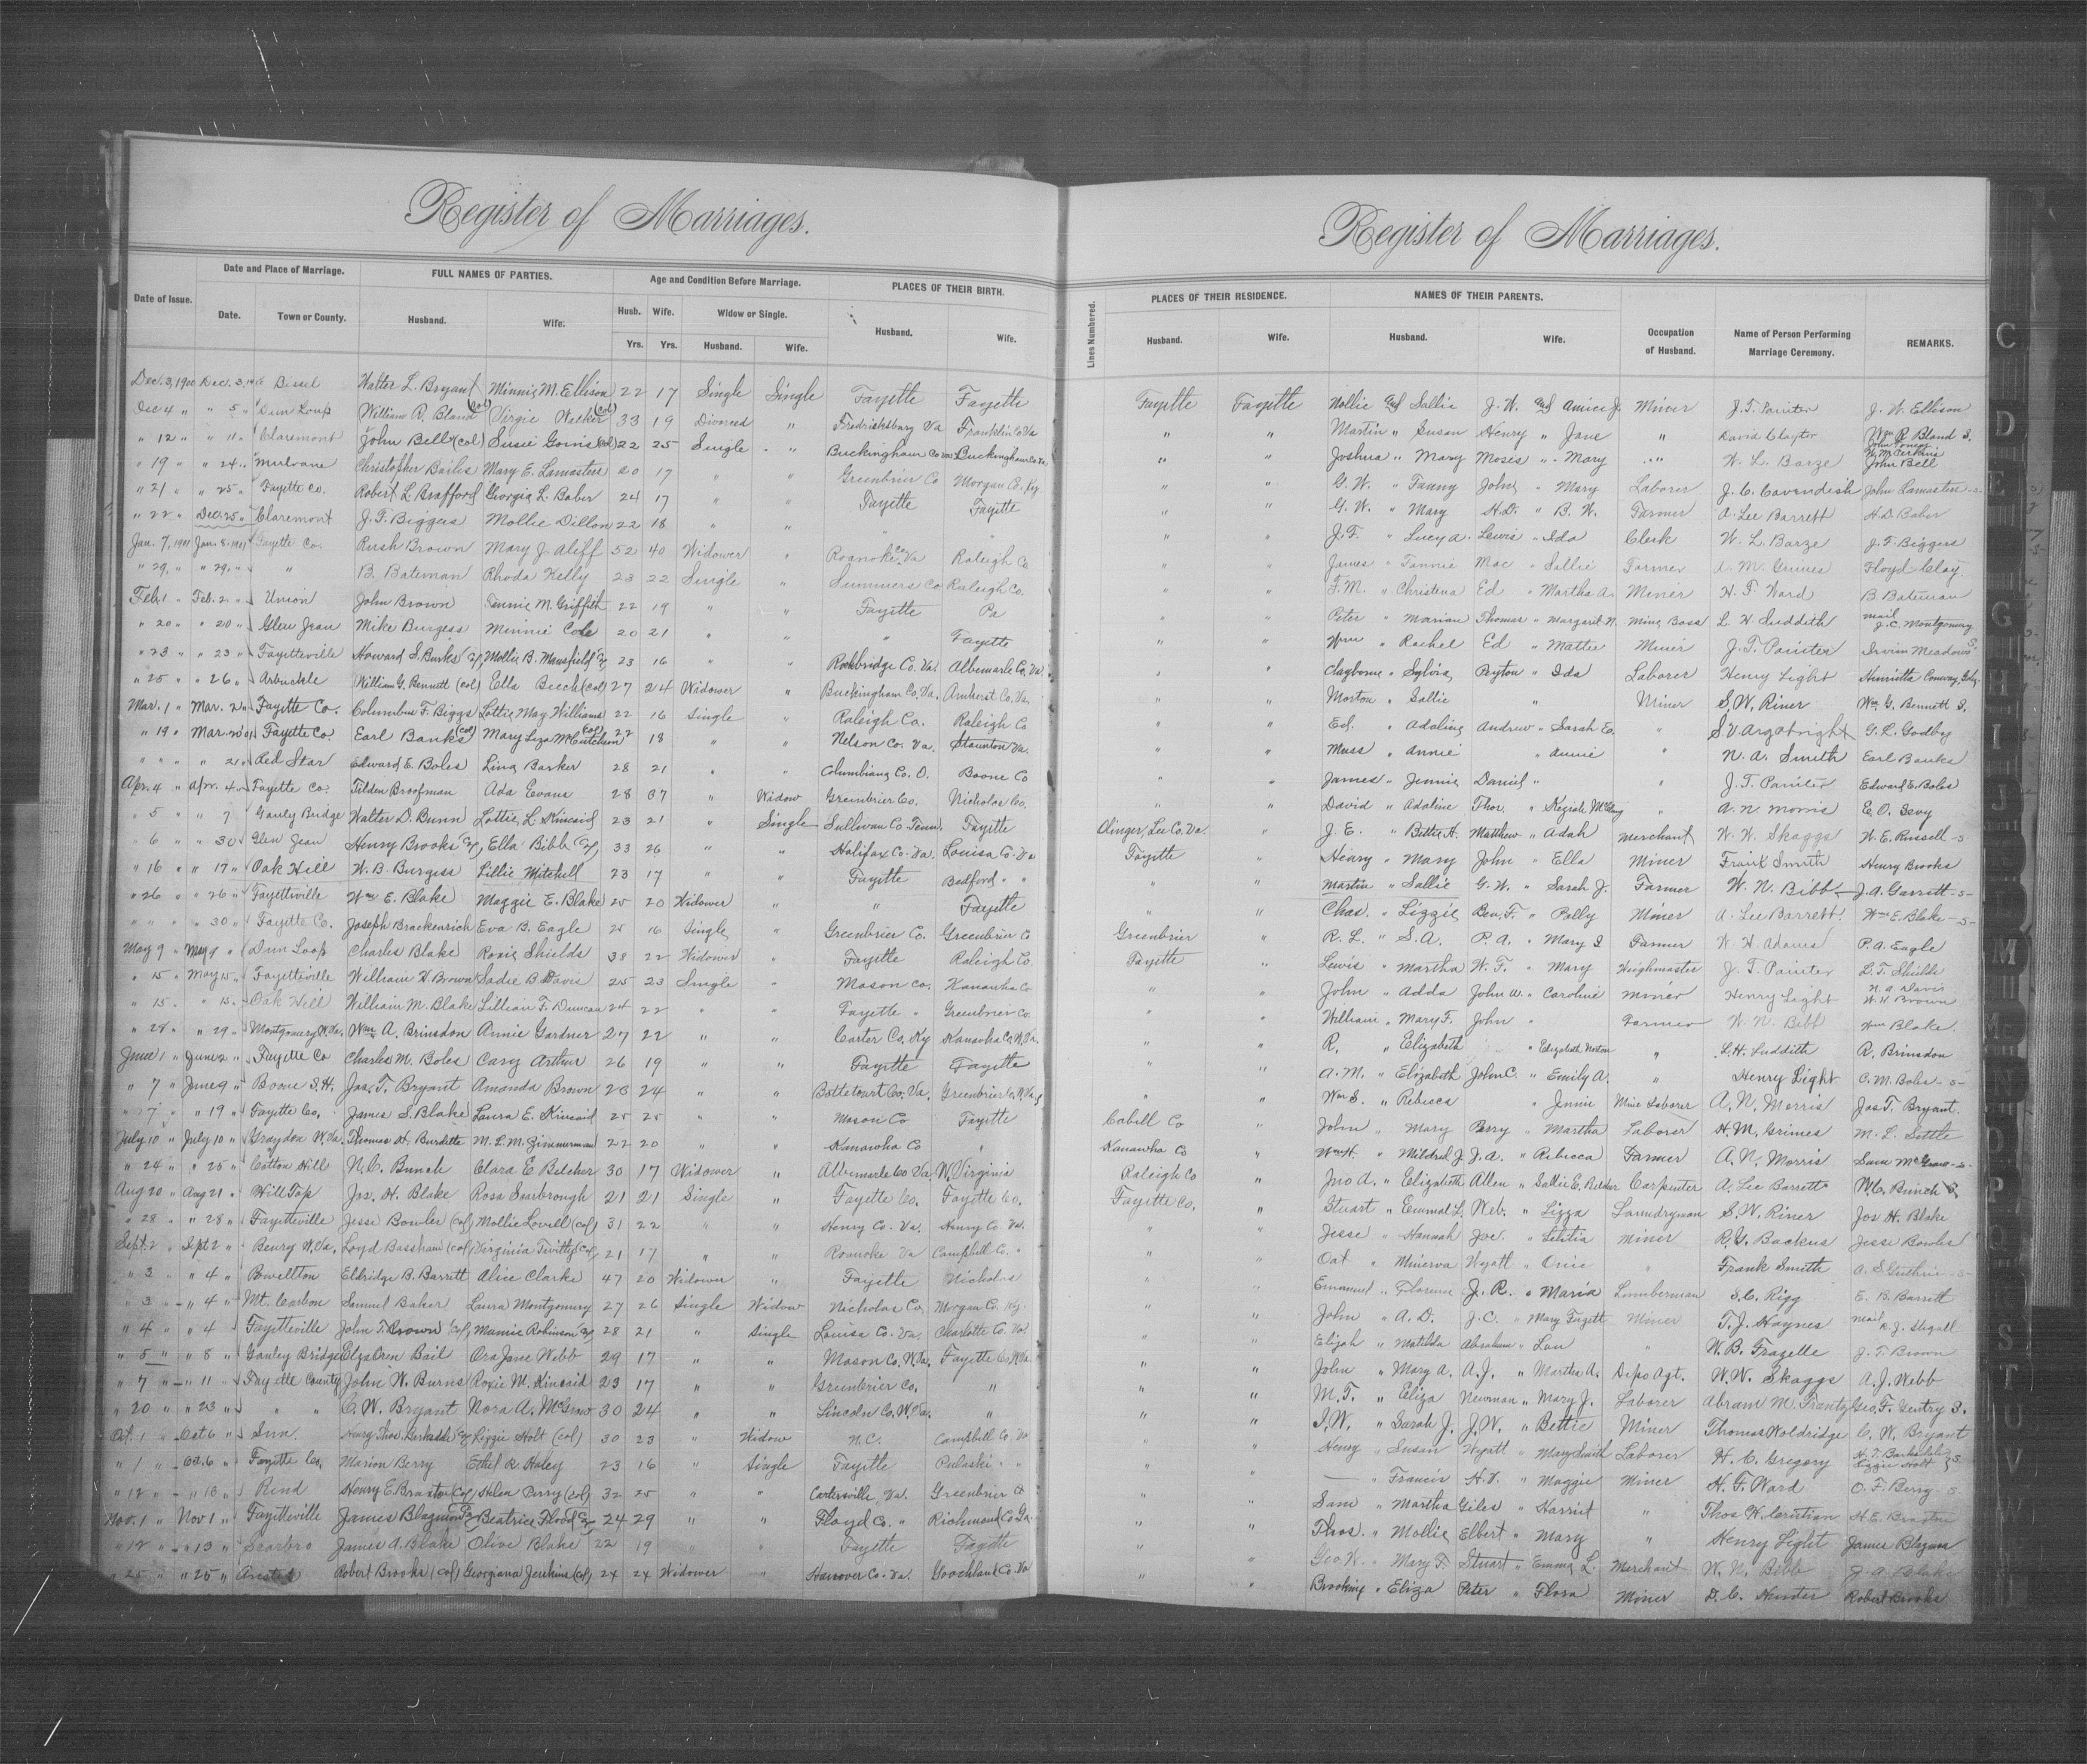 Register of Marriages.
Date of Issue. Date and Place of Marriage. FULL NAMES OF PARTIES. Age and Condition Before Marriage. PLACES OF THEIR BIRTH.
Date. Town or County. Husband. Wife. Husb. Wife. Widow or Single. Husband. Wife.
Yrs. Yrs. Husband. Wife.
Dec. 3, 1900 Dec. 3, Walter L. Bryant Minnie M. Ellison 22 17 Single Single Fayette Fayette
Dec 4 " " 5 " Dun Loup William R. Bland (col) Virgie Walker (col) 33 19 Divorced " Fredricksburg Va Franklin Co Va
" 12 " " 11 " Claremont John Bell (col) Susie Goins (col) 22 25 Single " Buckingham Co Va Buckingham Co Va
" 19 " " 24 " Mulvane Christopher Bailes Mary E. Lamasters 20 17 " " Greenbrier Co Morgan Co. Ky
" 21 " " 25 " Fayette Co. Robert L. Brafford Georgia L. Baber 24 17 " " Fayette Fayette
" 22 " Dec. 25 " Claremont J. F. Biggers Mollie Dillon 22 18 " " " "
Jan. 7, 1901 Jan. 8, 1901 Fayette Co. Rush Brown Mary J. Aliff 52 40 Widower " Roanoke Co Va Raleigh Co
" 29, " " 29, " " B. Bateman Rhoda Kelly 23 22 Single " Summers Co Raleigh Co.
Feb. 1 " Feb. 2 " Union John Brown Fennie M. Griffith 22 19 " " Fayette Pa
" 20 " " 20 " Glen Jean Mike Burgess Minnie Cole 20 21 " " " Fayette
" 23 " " 23 " Fayetteville Howard S. Burks Col, Mollie B. Mansfield Col 23 16 " " Rockbridge Co. Va. Albemarle Co. Va.
" 25 " " 26 " Arbuckle William G. Bennett (col) Ella Beech (col) 27 24 Widower " Buckingham Co. Va. Amherst Co. Va.
Mar. 1 " Mar. 2 " Fayette Co. Columbus F. Biggs Lottie May Williams 22 16 Single " Raleigh Co. Raleigh Co
" 19 " Mar. 20 01 Fayette Co. Earl Banks (col) Mary Liza McCutcheon (col) 22 18 " " Nelson Co. Va. Staunton Va.
" " " " 21 " Red Star Edward E. Boles Lina Barker 28 21 " " Columbiana Co. O. Boone Co
Apr. 4 " Apr. 4 " Fayette Co. Tilden Broofman Ada Evans 28 37 " Widow Greenbrier Co. Nicholas Co.
" 5 " " 7 Gauly Bridge Walter D. Bunn Lottie L. Kincaid 23 21 " Single Sullivan Co. Tenn. Fayette
" 6 " " 30 Glen Jean Henry Brooks Col, Ella Bibb Col, 33 26 " " Halifax Co. Va. Louisa Co. Va
" 16 " " 17 " Oak Hill W. B. Burgess Lillie Mitchell 23 17 " " Fayette Bedford " "
" 26 " " 26 " Fayetteville Wm E. Blake Maggie E. Blake 25 20 Widower " " Fayette
" " " " 30 " Fayette Co. Joseph Brackenrich Eva B. Eagle 25 16 Single " Greenbrier Co. Greenbrier Co
May 9 " May 9 " Dun Loop Charles Blake Rosie Shields 38 22 Widower " Fayette Raleigh Co.
" 15 " May 15 " Fayetteville William H. Brown Sadie B. Davis 25 23 Single " Mason Co. Kanawha Co
" 15 " " 15 " Oak Hill William M. Blake Lillian F. Duncan 24 22 " " Fayette " Greenbrier Co.
" 28 " " 29 " Montgomery W. Va. Wm A. Brinsdon Annie Gardner 27 22 " " Carter Co. Ky Kanawha Co. W. Va.
June 1 " June 2 " Fayette Co Charles M. Boles Cary Arthur 26 19 " " Fayette Fayette
" 7 " June 9 " Boone S.H. Jas. T. Bryant Amanda Brown 26 24 " " Bottetourt Co. Va. Greenbrier Co. W. Va.
" 17 " " 19 " Fayette Co, James S. Blake Laura E. Kincaid 25 25 " " Mason Co Fayette
July 10 " July 10 " Graydon W. Va. Thomas H. Burdette M. L. M. Zimmerman 22 20 " " Kanawha Co "
" 24 " " 25 " Cotton Hill N. C. Bunch Clara E Belcher 30 17 Widower " Albemarle Co Va. W. Virginia
Aug 20 " Aug 21 " Hill Top Jos. H. Blake Rosa Scarbrough 21 21 Single " Fayette Co. Fayette Co.
" 28 " " 28 " Fayetteville Jesse Bowles (col) Mollie Lovell (col) 31 22 " " Henry Co. Va. Henry Co. Va.
Sept. 2 " Sept 2 " Beury W. Va. Loyd Bassham (col) Virginia Twitty (col, 21 17 " " Roanoke Va Campbell Co. "
" 3 " " 4 " Powellton Eldridge B. Barrett Alice Clarke 47 20 Widower " Fayette Nicholas
" 3 " " 4 " Mt. Carbon Samuel Baker Laura Montgomery 27 26 Single Widow Nicholas Co. Morgan Co. Ky.
" 4 " " 4 Fayetteville John T. Brown (col, Mamie Robinson Col 28 21 " Single Louisa Co. Va. Charlotte Co. Va.
" 5 " " 8 " Gauley Bridge Elza Oren Bail Ora Jane Webb 29 17 " " Mason Co. W. Va. Fayette Co. W. Va.
" 7 " " 11 " Fayette County John W. Burns Rosie M. Kincaid 23 17 " " Greenbrier Co. "
" 20 " " 23 " " " C. W. Bryant Nora A. McGraw 30 24 " " Lincoln Co. W. Va. "
Oct. 1 " Oct 6 " Sun Henry Thos. Barksdale Col Lizzie Holt (col) 30 23 " Widow N. C. Campbell Co. Va
" 1 " Oct. 6 " Fayette Co. Marion Berry Ethel R. Haley 23 16 " Single Fayette Pulaski " "
" 12 " " 13 " Rend Henry E. Braxton (col) Helen Perry (col) 32 25 " " Cartersville, Va. Greenbrier Co
Nov. 1 " Nov 1 " Fayetteville James Blagmon Col Beatrice Flood Col 24 29 " " Floyd Co. " Richmond Co. Ga.
" 12 " " 13 " Scarbro James A. Blake Olive Blake 22 19 " " Fayette Fayette
" 25 " " 25 " Ansted Robert Brooks (col) Georgiana Jenkins (col) 24 24 Widower " Hanover Co. Va. Goochland Co. Va
Register of Marriages.
Lines Numbered. PLACES OF THEIR RESIDENCE. NAMES OF THEIR PARENTS. Occupation of Husband. Name of Person Performing Marriage Ceremony. REMARKS.
Husband. Wife. Husband. Wife.
Fayette Fayette Nollie and Sallie J. W. and Amice J. Miner J. T. Painter J. W. Ellison
" " Martin " Susan Henry " Jane " David Claytor Wm R Bland S.
" " Joshua " Mary Moses " Mary " W. L. Barze John Bell
" " G. W. " Fanny John " Mary Laborer J. C. Cavendish John Lamasters -s-
" " G. W. " Mary H. D. " B. W. Farmer A. Lee Barrett H. D. Baber
" " J. F. " Lucy A. Lewis " Ida Clerk W. L. Barze J. F. Biggers
" " James " Fannie Mac " Sallie Farmer A. M. Grimes Floyd Clay
" " F. M. " Christena Ed " Martha A. Miner H. F. Ward B. Bateman
" " Peter " Marian Thomas " Margaret N. Mine Boss L. H. Suddith mail J. C. Montgomery
" " Wm " Rachel Ed " Mattie Miner J. T. Painter Irvin Meadows S.
" " Clayborne " Sylvia Peyton " Ida Laborer Henry Light Henrietta Conway, Col.
" " Morton " Sallie " Miner S. W. Riner Wm. G. Bennett S.
" " Ed. " Adaline Andrew " Sarah E. " S. V. Argabright G. L. Godby
" " Muss " Annie " Annie " N. A. Smith Earl Banks
" " James " Jennie Daniel " " J. T. Painter Edward E. Boles
" " David " Adaline Thos. " Keziah McClung " A. N. Morris E. O. Sevy
Olinger, Lee Co. Va. " J. E. " Bettie A. Matthew " Adah Merchant W. W. Skaggs W. E. Russell -s
Fayette " Henry " Mary John " Ella Miner Frank Smith Henry Brooks
" " Martin " Sallie G. W. " Sarah J. Farmer W. N. Bibb J. A. Garrett -s-
" " Chas. " Lizzie Ben. F. " Polly Miner A. Lee Barrett. Wm E. Blake -s-
Greenbrier " R. L. " S. A. P. A. " Mary S Farmer W. H. Adams P. A. Eagle
Fayette " Lewis " Martha W. F. " Mary Weighmaster J. T. Painter L. T. Shields
" " John " Adda John W. " Caroline Miner Henry Light N. A. Davis W. H. Brown
" " William " Mary F. John " Farmer W. N. Bibb Wm Blake.
" " R. " Elizabeth " Elizabeth Norton " L. H. Suddith R. Brinsdon
" " A. M. " Elizabeth John C. " Emily A. " Henry Light C. M. Boles -s-
" " Wm S. " Rebecca " Jennie Mine Laborer A. N. Morris Jas T. Bryant.
Cabell Co " John " Mary Perry " Martha Laborer H. M. Grimes M. L. Settle
Kanawha Co " Wm H. " Mildred J. J. A. " Rebecca Farmer A. N. Morris Sam McGraw -s-
Raleigh Co " Jno A. " Elizabeth Allen " Sallie E. Belcher Carpenter A. Lee Barrett N. C. Bunch S.
Fayette Co. " Stuart " Emma L. Web. " Lizza Laundryman S. W. Riner Jos H. Blake
" " Jesse " Hannah Joe. " Letitia Miner R. G. Backus Jesse Bowles
" " Oat " Minerva Wyatt " Onie " Frank Smith A. S. Guthrie -s-
" " Emanuel " Florence J. R. " Maria Lumberman S. C. Rigg E. B. Barrett
" " John " A. D. J. C. " Mary Fugett Miner T. J. Haynes Mail R. J. Stegall
" " Elijah " Matilda Abraham " Lou " W. B. Frazelle J. T. Brown
" " John " Mary A. A. J. " Martha A. Depo Agt. W. W. Skaggs A. J. Webb
" " M. T. " Eliza Newman " Mary J. Laborer Abram M. Frantz Geo. F. Gentry S.
" " I. W. " Sarah J. J. W. " Bettie Miner Thomas Woldridge C. W. Bryant
" " Henry " Susan Wyatt " Mary Smith Laborer H. C. Gregory H. T. Barksdale Lizzie Holt } S
" " — " Francis H. V. " Maggie Miner H. F. Ward O. F. Berry -s
" " Sam " Martha Giles " Harriet " Thos W. H. E. Braxton
" " Thos. " Mollie Elbert " Mary " Henry Light James Blagmon
" " Geo W. " Mary F. Stuart " Emma L. Merchant W. N. Bibb J. A. Blake
" " Brooking " Eliza Peter " Flora Miner D. C. Hunter Robert Brooks
C
D
E
G
H
I
J
L
M
Mc
P
S
T
U
V